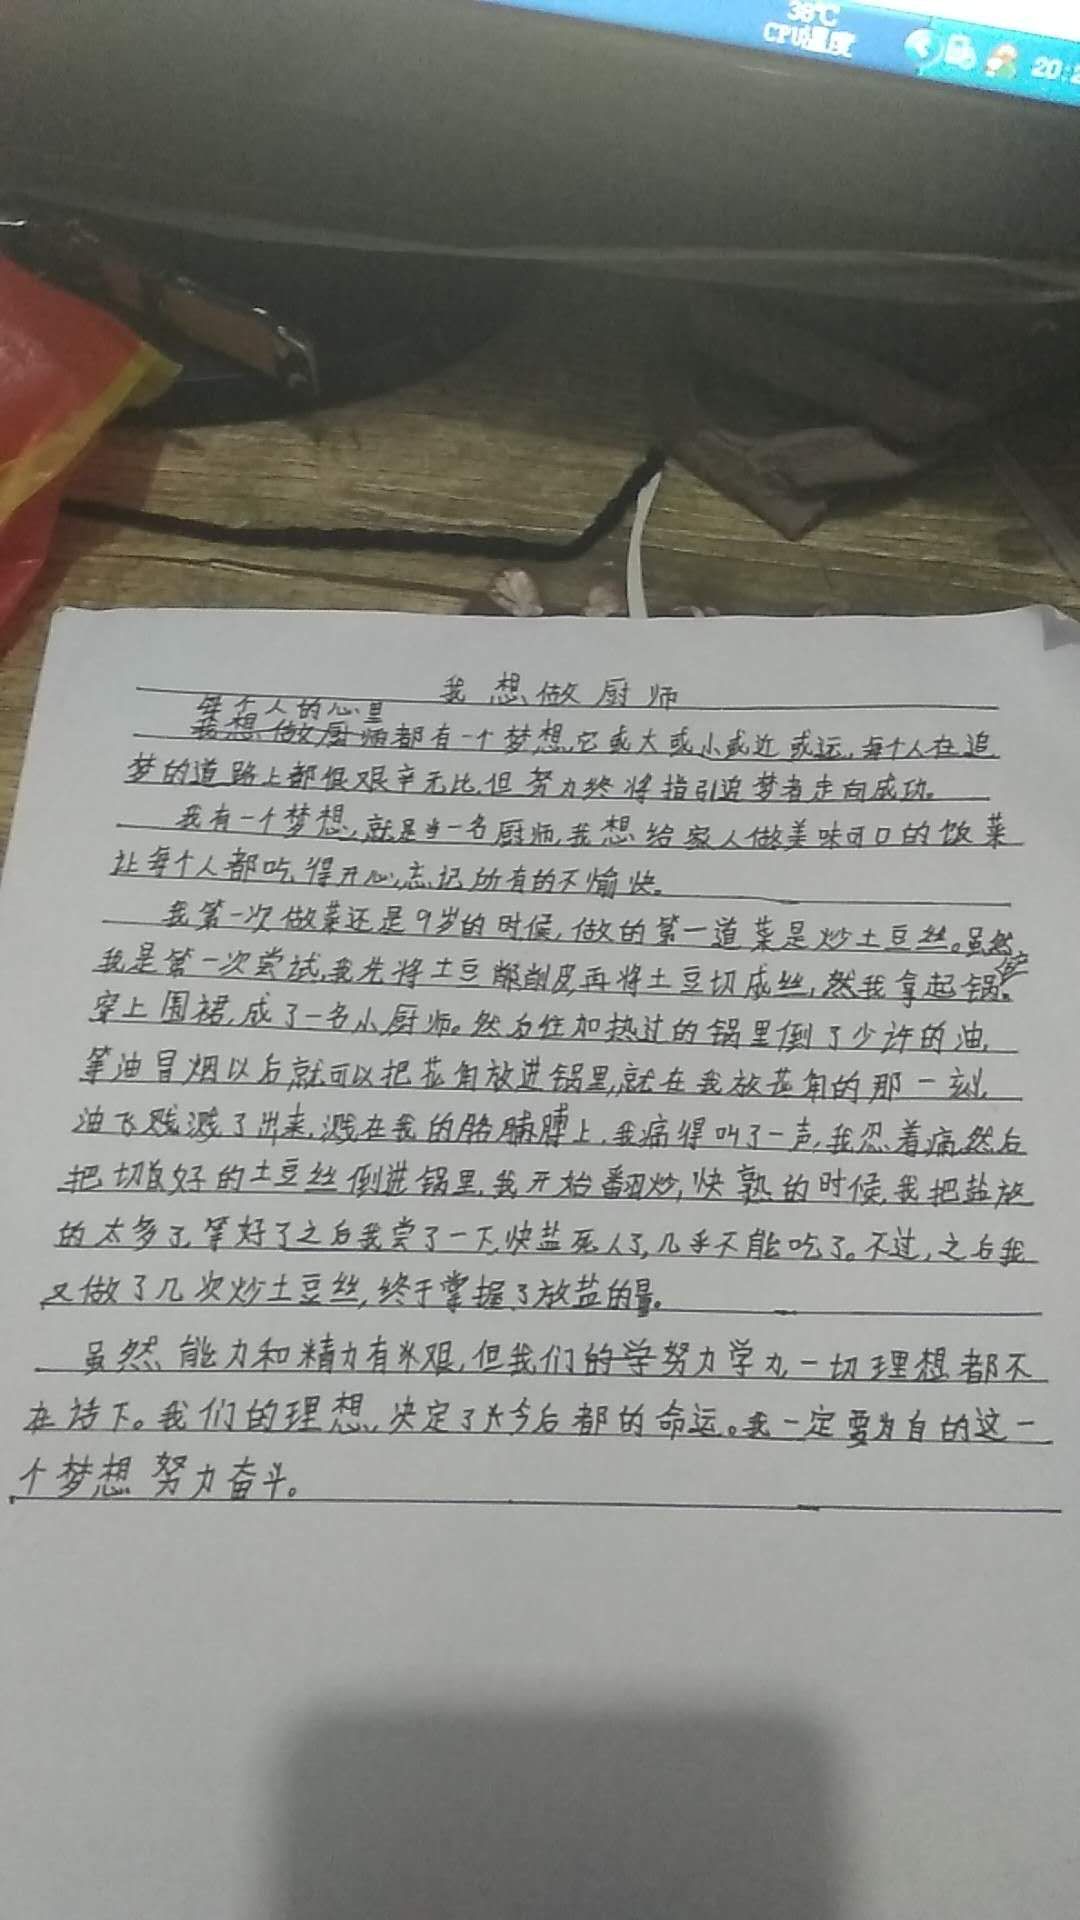 38℃
CPU温度
20:2
我想做厨师
每个人的心里
我想做厨师都有一个梦想,它或大或小或近或远,每个人在追
梦的道路上都很艰辛无比,但努力终将指引追梦者走向成功。
我有一个梦想,就是当一名厨师,我想给家人做美味可口的饭菜
让每个人都吃得开心,忘记所有的不愉快。
我第一次做菜还是9岁的时候,做的第一道菜是炒土豆丝。虽然
我是第一次尝试,我先将土豆削皮,再将土豆切成丝,然我拿起锅铲
穿上围裙,成了一名小厨师。然后往加热过的锅里倒了少许的油,
等油冒烟以后,就可以把花角放进锅里,就在我放花角的那一刻,
油飞溅了出来,溅在我的胳膊上,我痛得叫了一声,我忍着痛,然后
把切好的土豆丝倒进锅里,我开始翻炒,快熟的时候,我把盐放
的太多了,等好了之后我尝了一下,快盐死人了,几乎不能吃了。不过,之后我
又做了几次炒土豆丝,终于掌握了放盐的量。
虽然,能力和精力有艰,但我们的学努力学力,一切理想都不
在话下。我们的理想,决定了今后都的命运。我一定要为自的这一
个梦想努力奋斗。